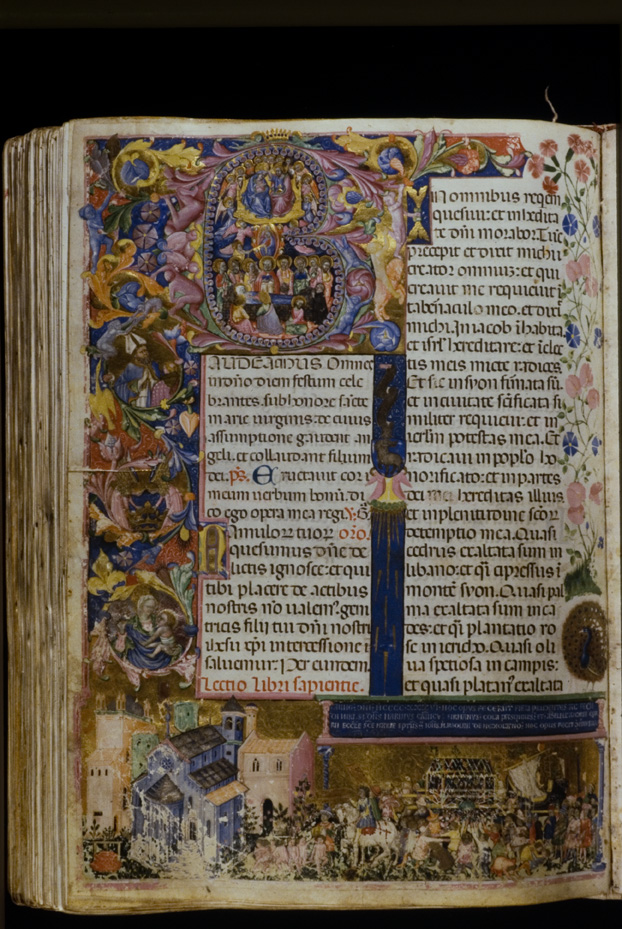 AUDEAMUS Omnes
in dño diem festum cele
brantes. sub honore sãcte
marie uirginis. de cuius
assumptione gaudent an
geli. et collaudant filium
dei. p̃s. Eructauit cor
meum uerbum bonũ. di
co ego opera mea regi. ỹ. G̃
Famulorz tuorz orõ.
quesumus dñe de
lictis ignosce: et qui
tibi placere de actibus
nostris nõ ualem9. geni
tricis filii tui dñi nostri
ihesu xp̃i intercessione
saluemur. Per eundem.
Lectio libri sapientie.
IN omnibus requiem
quesiui: et in heredita
te dñi morabor. Tũc
precepit et dixit michi
creator omniuz: et qui
creauit me requieuit ĩ
tabernaculo meo. et dixit
michi. In iacob ĩhabita
et isrl̃ hereditare: et ĩ elec
tis meis mitte radices
Et sic in syon firmata sũ.
et in ciuitate sc̃ificata si
militer requieui: et in
ierlm̃ potestas mea. Et
radicaui in popl̃o ho
norificato: et in partes
dei mei hereditas illius
et in plenitudine sc̃orz
detemptio mea. Quasi
cedrus exaltata sum in
libano: et q̃i cipressus ĩ
monte syon. Quasi pal
ma exaltata sum in ca
des: et q̃i plantatio ro
se in iericho. Quasi oli
ua spetiosa in campis:
et quasi platan9 exaltata